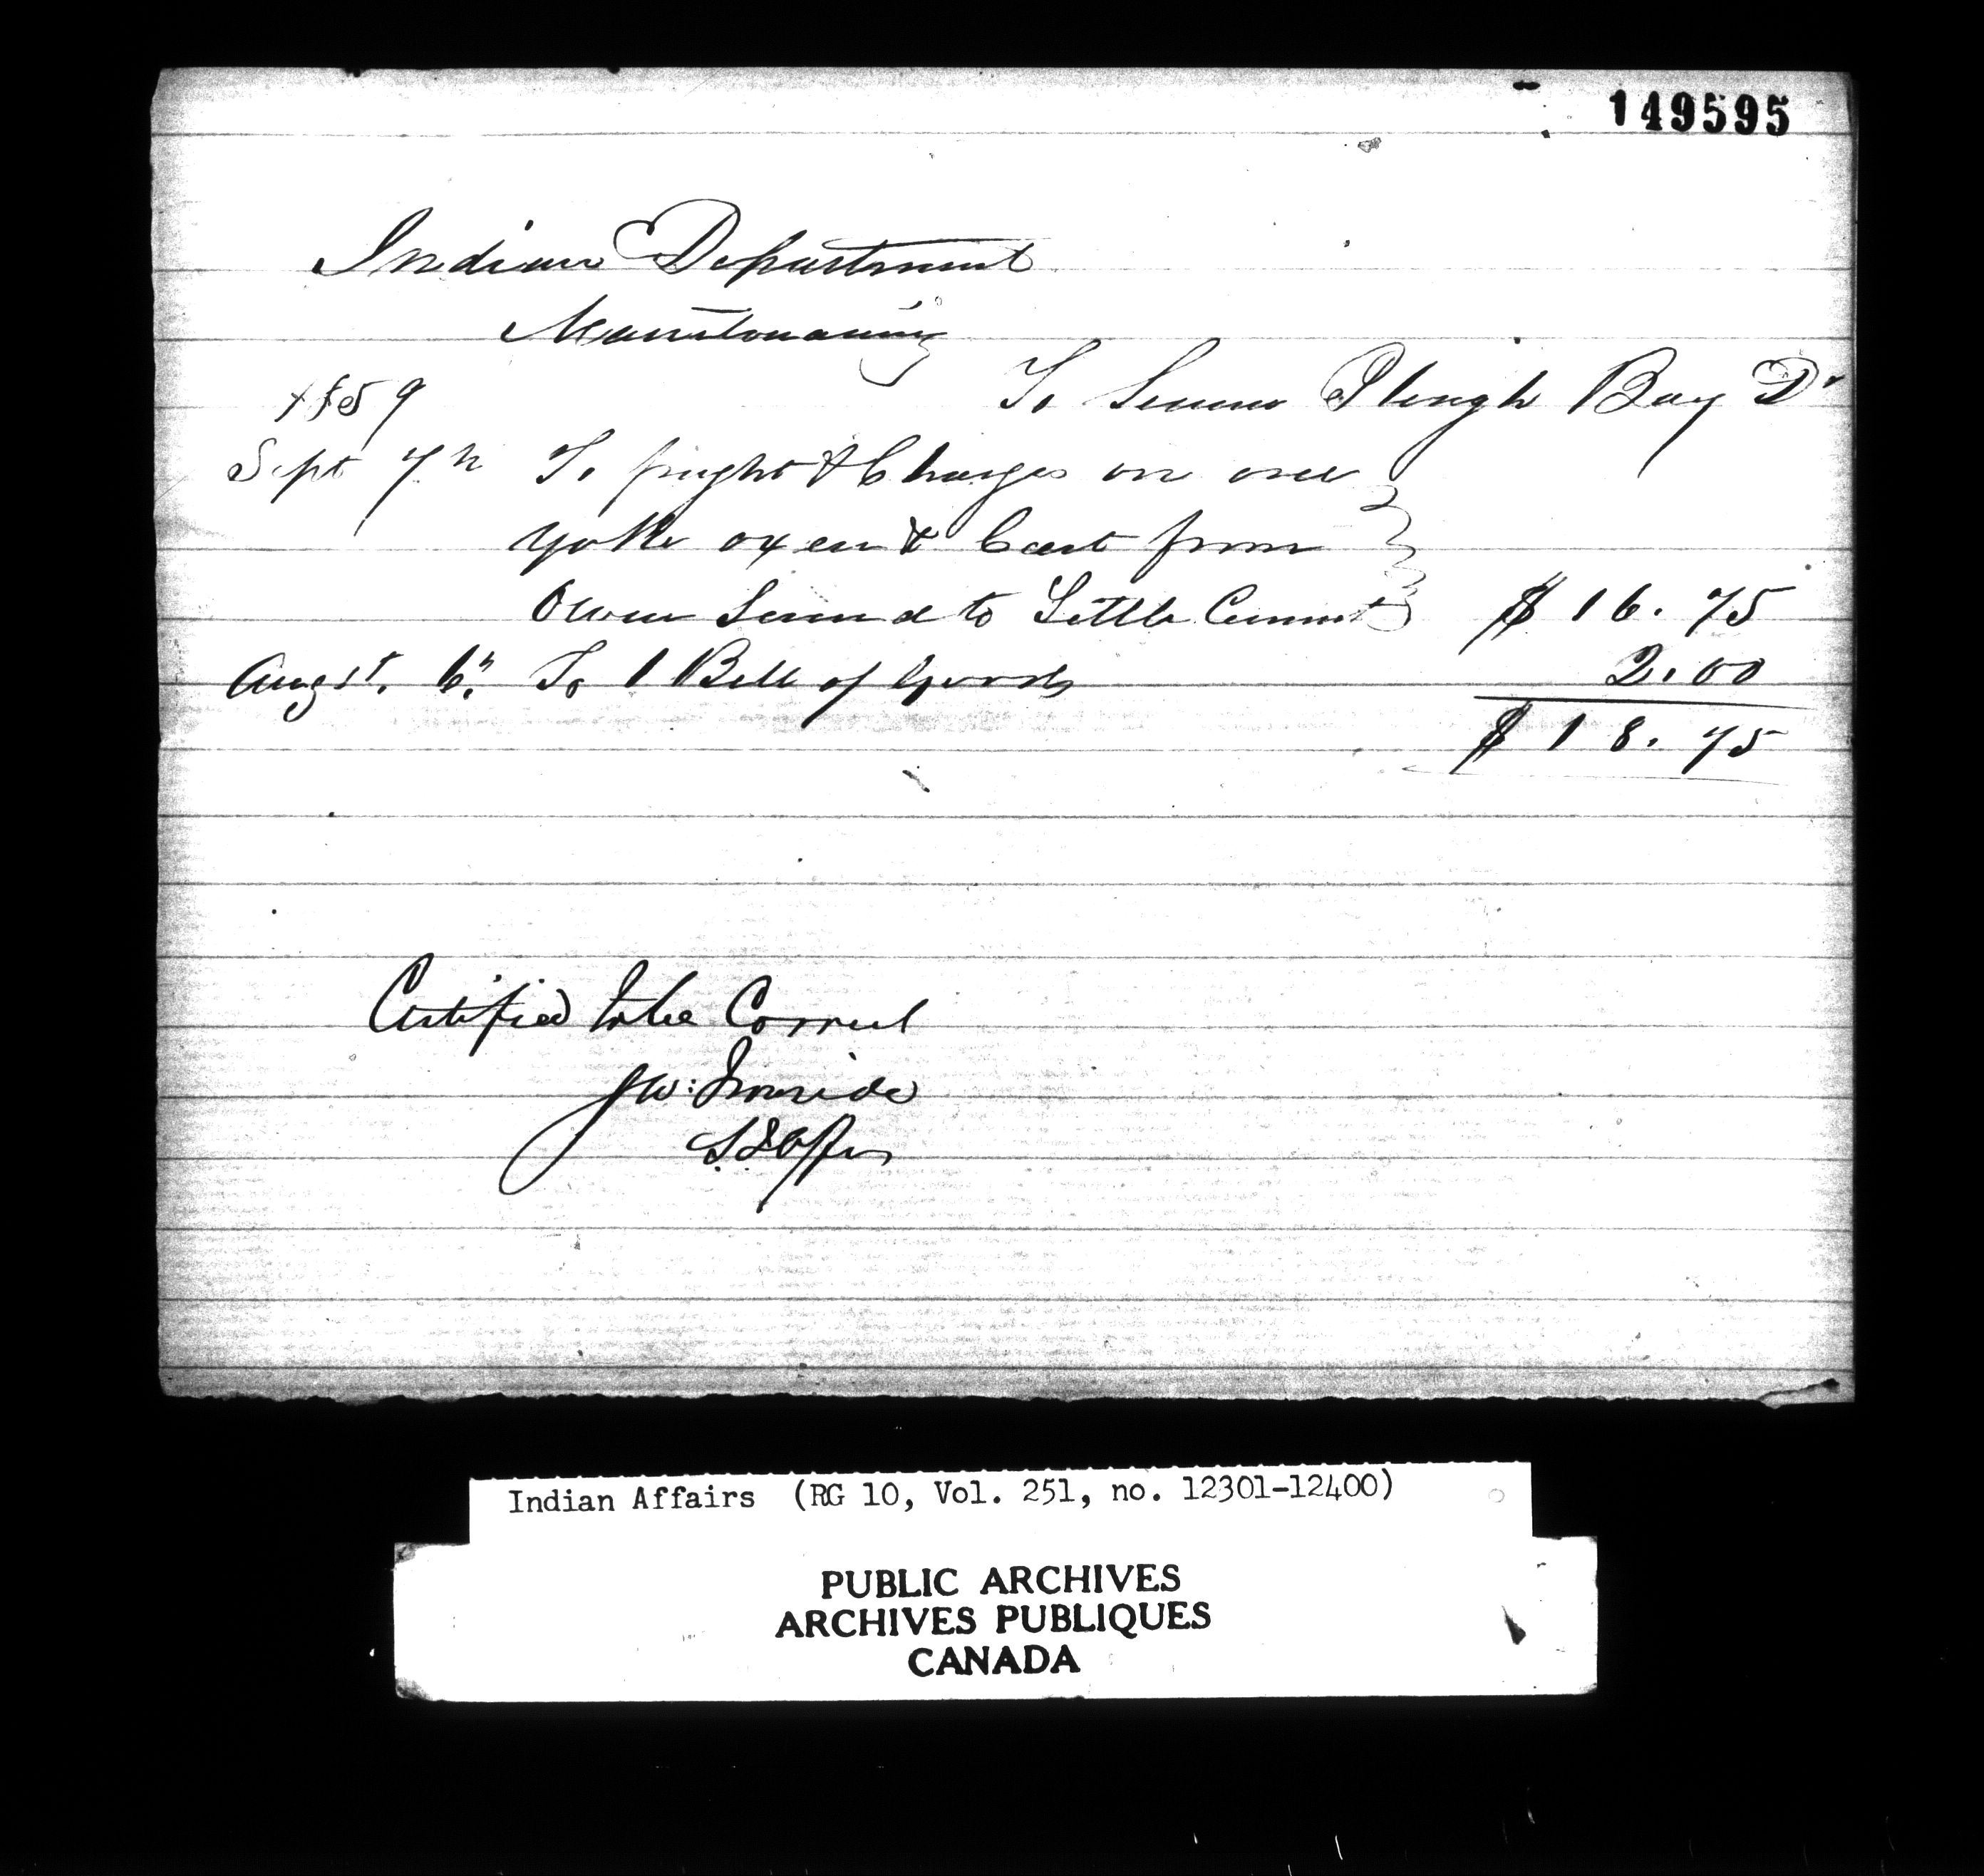 149595
Indian Department
Manitowaning
1859
To Steamer Plough Boy Dr
Sept 7th To freight & Charges on one
yoke oxen & Cart from
Owen Sound to Little Current $ 16.75
Augst. 6th To 1 Bell of Goods 2.00
$ 18.75
Certified to be Correct
Ironside
Indian Affairs (RG 10, Vol. 251, no. 12301-12400)
PUBLIC ARCHIVES
ARCHIVES PUBLIQUES
CANADA